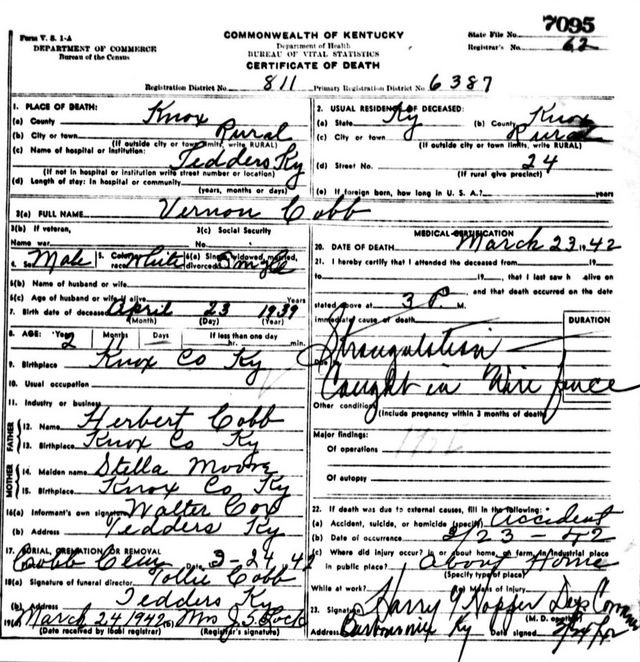 Form V. S. 1-A
DEPARTMENT OF COMMERCE
Bureau of the Census
COMMONWEALTH OF KENTUCKY
Department of Health
BUREAU OF VITAL STATISTICS
CERTIFICATE OF DEATH
7095
State File No.
Registrar's No. 62
Registration District No. 811 Primary Registration District No. 6387
1. PLACE OF DEATH:
(a) County Knox
(b) City or town Rural
(If outside city or town limits, write RURAL)
(c) Name of hospital or institution:
Tedders Ky
(If not in hospital or institution write street number or location)
(d) Length of stay: In hospital or community
(years, months or days)
2. USUAL RESIDENCE OF DECEASED:
(a) State Ky (b) County Knox
(c) City or town Rural
(If outside city or town limits, write RURAL)
(d) Street No. 24
(If rural give precinct)
(e) If foreign born, how long in U. S. A.? years
3(a) FULL NAME Vernon Cobb
3(b) If veteran,
Name war
3(c) Social Security
No.
4. Sex Male 5. Color or race White 6(a) Single, widowed, married, divorced Single
6(b) Name of husband or wife
6(c) Age of husband or wife if alive Years
7. Birth date of deceased April 23 1939
(Month) (Day) (Year)
8. AGE: Years 2 Months Days If less than one day
hr. min.
9. Birthplace Knox Co Ky
10. Usual occupation
11. Industry or business
FATHER
12. Name Herbert Cobb
13. Birthplace Knox Co Ky
MOTHER
14. Maiden name Stella Moore
15. Birthplace Knox Co Ky
16(a) Informant's own signature Walter Cox
(b) Address Tedders Ky
17. BURIAL, CREMATION OR REMOVAL
Cobb Cem Date 3-24, 42
18(a) Signature of funeral director Tollie Cobb
(b) Address Tedders Ky
19(a) March 24 1942 Mrs J. S. Lock
(Date received by local registrar) (Registrar's signature)
MEDICAL CERTIFICATION
20. DATE OF DEATH March 23 1942
21. I hereby certify that I attended the deceased from 19
to 19 , that I last saw h alive on
19 , and that death occurred on the date
stated above at 3 P. M.
Immediate cause of death DURATION
Strangulation
Due to
Caught in Wire fence
Other conditions
(Include pregnancy within 3 months of death)
Major findings:
Of operations
Of autopsy
22. If death was due to external causes, fill in the following:
(a) Accident, suicide, or homicide (specify) Accident
(b) Date of occurrence 3/23-42
(c) Where did injury occur? in or about home, on farm, in industrial place
in public place? About Home
(Specify type of place)
While at work? (e) Means of injury
23. Signature Harry
(M. D. or other)
Address Barbourville Ky Date signed